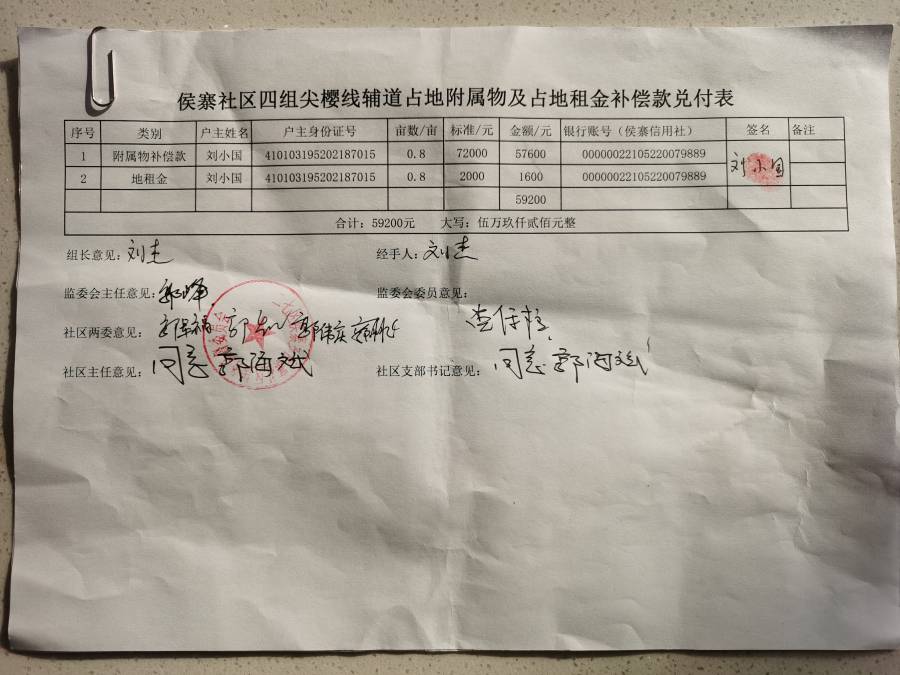 侯寨社区四组尖樱线辅道占地附属物及占地租金补偿款兑付表
序号 类别 户主姓名 户主身份证号 亩数/亩 标准/元 金额/元 银行账号（侯寨信用社） 签名 备注
1 附属物补偿款 刘小国 410103195202187015 0.8 72000 57600 00000022105220079889 刘小国
2 地租金 刘小国 410103195202187015 0.8 2000 1600 00000022105220079889
59200
合计：59200元 大写：伍万玖仟贰佰元整
组长意见：刘杰 经手人：刘杰
监委会主任意见： 监委会委员意见：
社区两委意见：
社区主任意见：同意 社区支部书记意见：同意